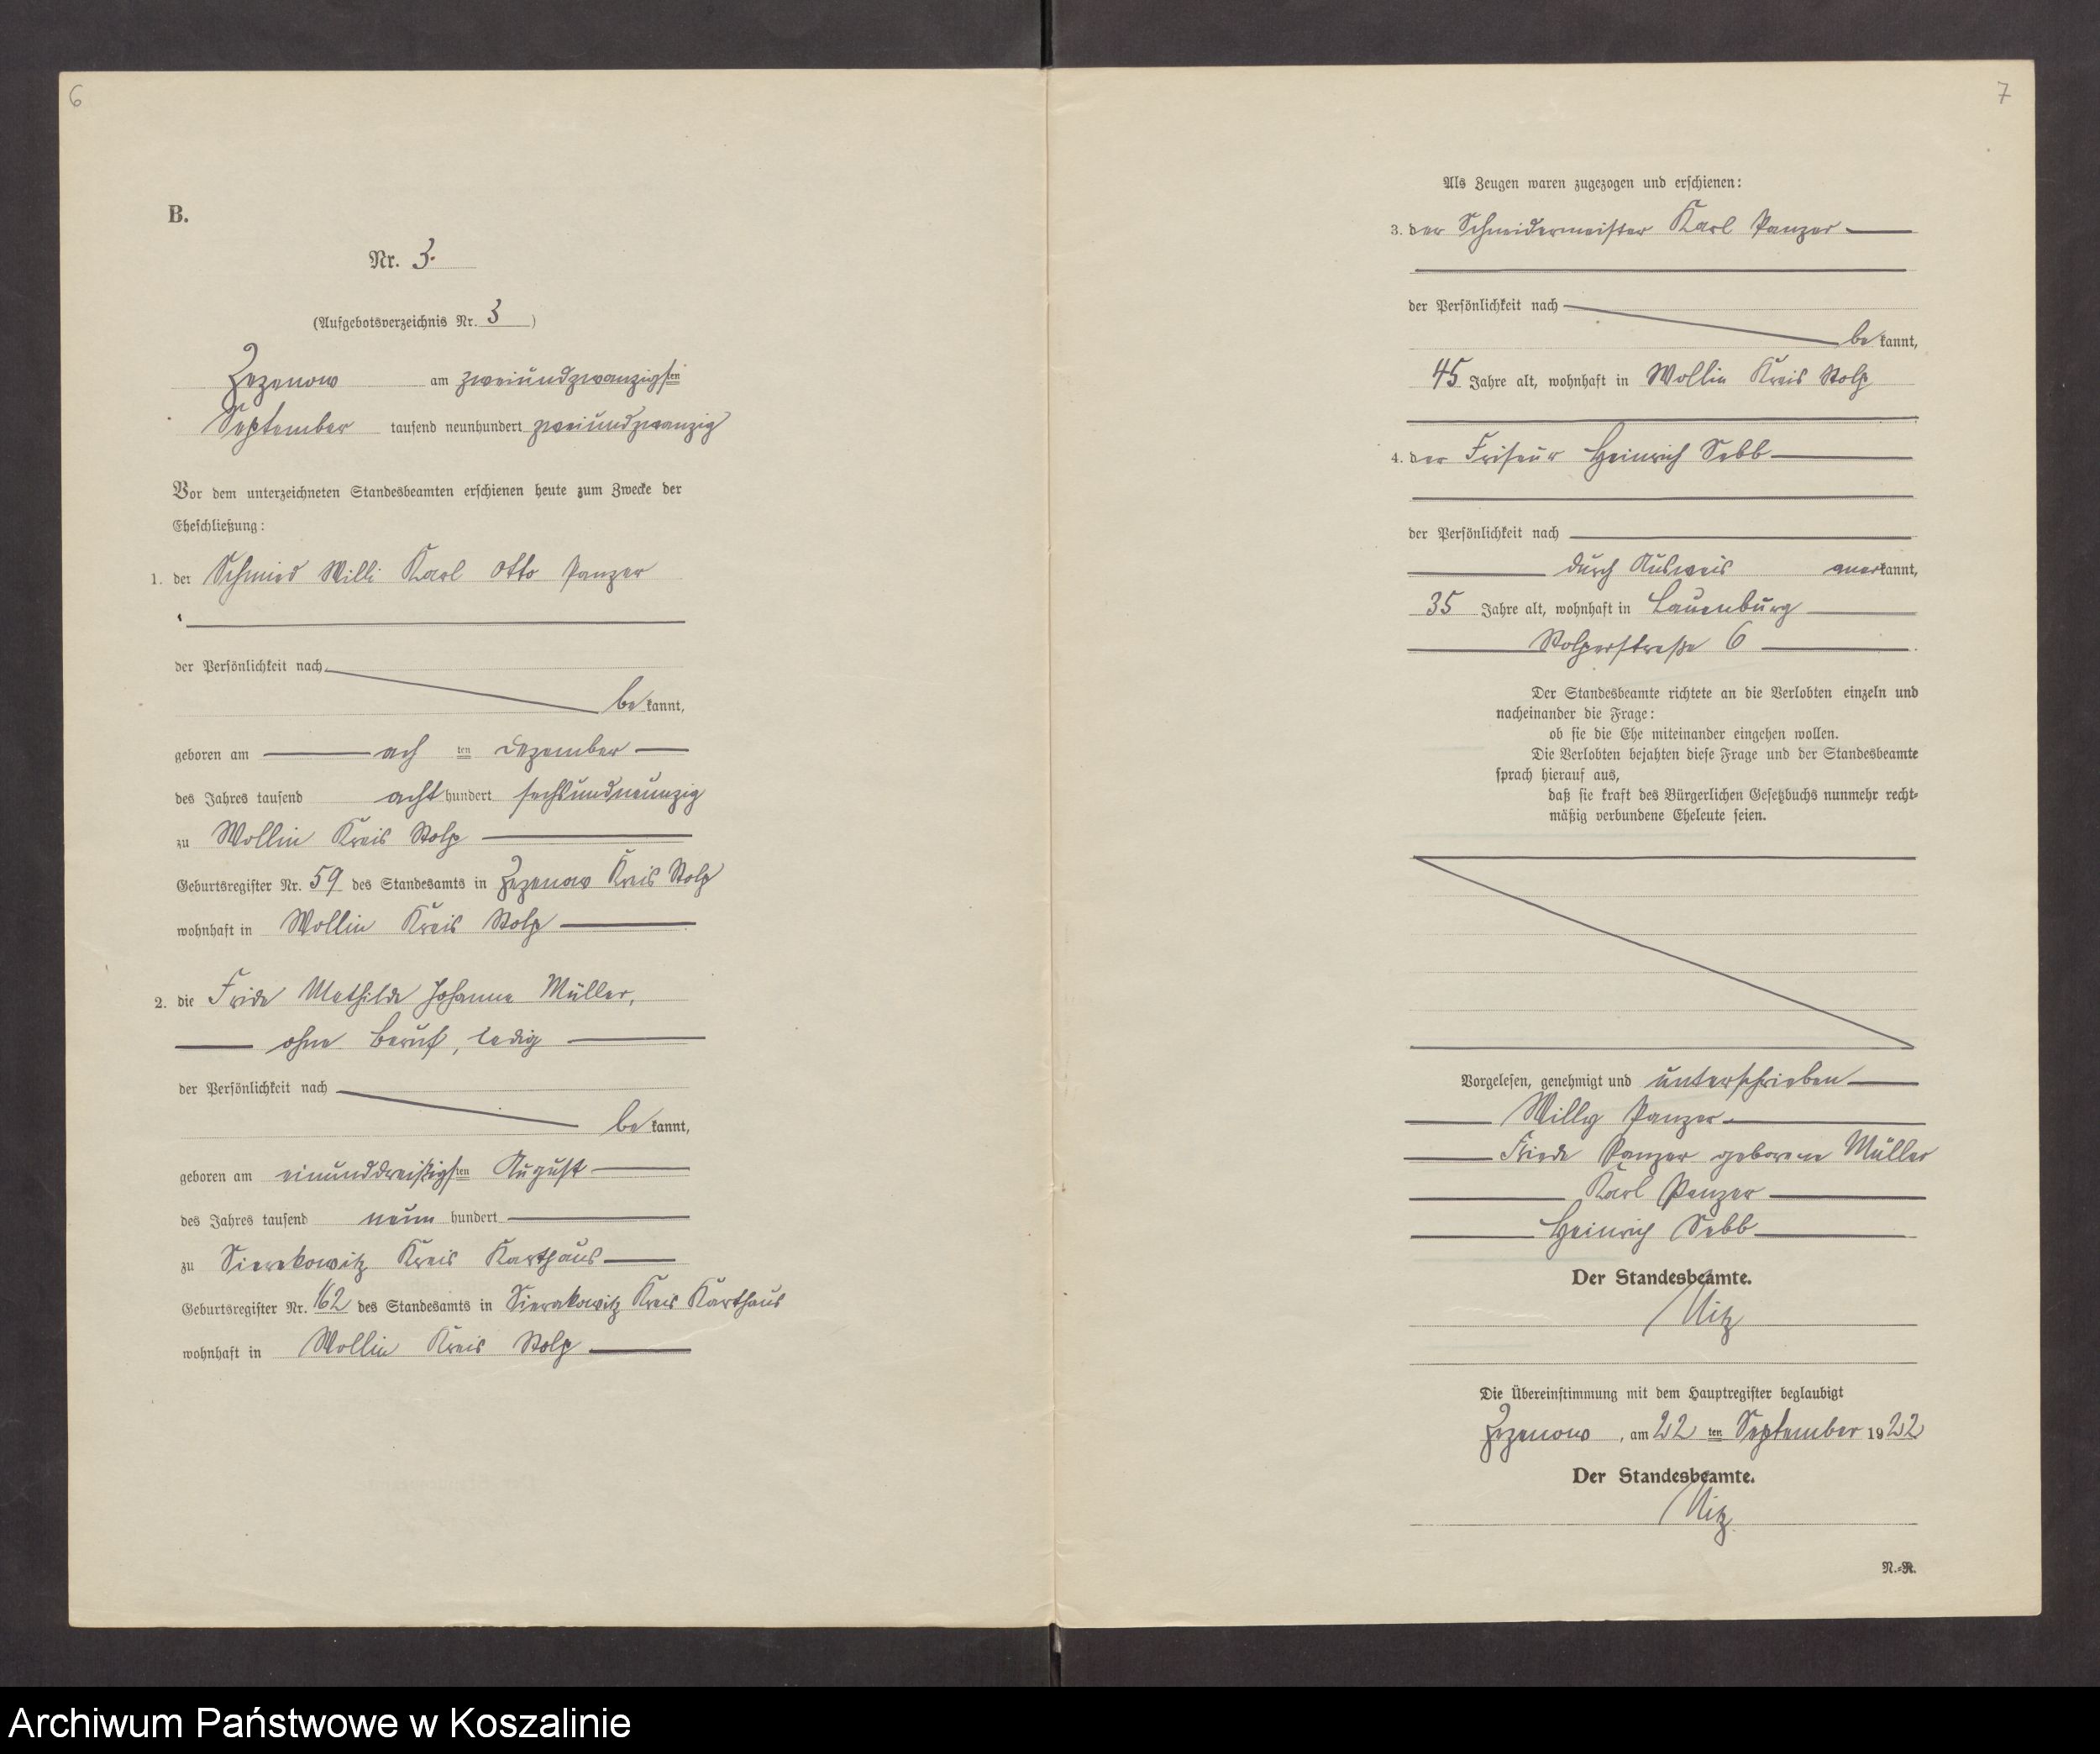 6
B.
Nr. 3.
(Aufgebotsverzeichnis Nr. 3)
Zezenow am zweiundzwanzigsten
September tausend neunhundert zweiundzwanzig
Vor dem unterzeichneten Standesbeamten erschienen heute zum Zwecke der
Eheschließung:
1. der Schmied Willi Karl Otto Panzer
der Persönlichkeit nach
bekannt,
geboren am ach ten Dezember
des Jahres tausend acht hundert sechsundneunzig
zu Wollin Kreis Stolp
Geburtsregister Nr. 59 des Standesamts in Zezenow Kreis Stolp
wohnhaft in Wollin Kreis Stolp
2. die Frida Mathilde Johanna Müller,
ohne Beruf, ledig
der Persönlichkeit nach
bekannt,
geboren am einunddreißigsten August
des Jahres tausend neun hundert
zu Sierakowitz Kreis Karthaus
Geburtsregister Nr. 162 des Standesamts in Sierakowitz Kreis Karthaus
wohnhaft in Wollin Kreis Stolp
7
Als Zeugen waren zugezogen und erschienen:
3. der Schneidermeister Karl Panzer
der Persönlichkeit nach
bekannt,
45 Jahre alt, wohnhaft in Wollin Kreis Stolp
4. der Friseur Heinrich Sebb
der Persönlichkeit nach
durch Ausweis anerkannt,
35 Jahre alt, wohnhaft in Lauenburg
Stolperstraße 6
Der Standesbeamte richtete an die Verlobten einzeln und
nacheinander die Frage:
ob sie die Ehe miteinander eingehen wollen.
Die Verlobten bejahten diese Frage und der Standesbeamte
sprach hierauf aus,
daß sie kraft des Bürgerlichen Gesetzbuchs nunmehr recht-
mäßig verbundene Eheleute seien.
Vorgelesen, genehmigt und unterschrieben
Willy Panzer
Friede Panzer geborene Müller
Karl Panzer
Heinrich Sebb
Der Standesbeamte.
Nitz
Die Übereinstimmung mit dem Hauptregister beglaubigt
Zezenow, am 22 ten September 1922
Der Standesbeamte.
Nitz
N.-R.
Archiwum Państwowe w Koszalinie